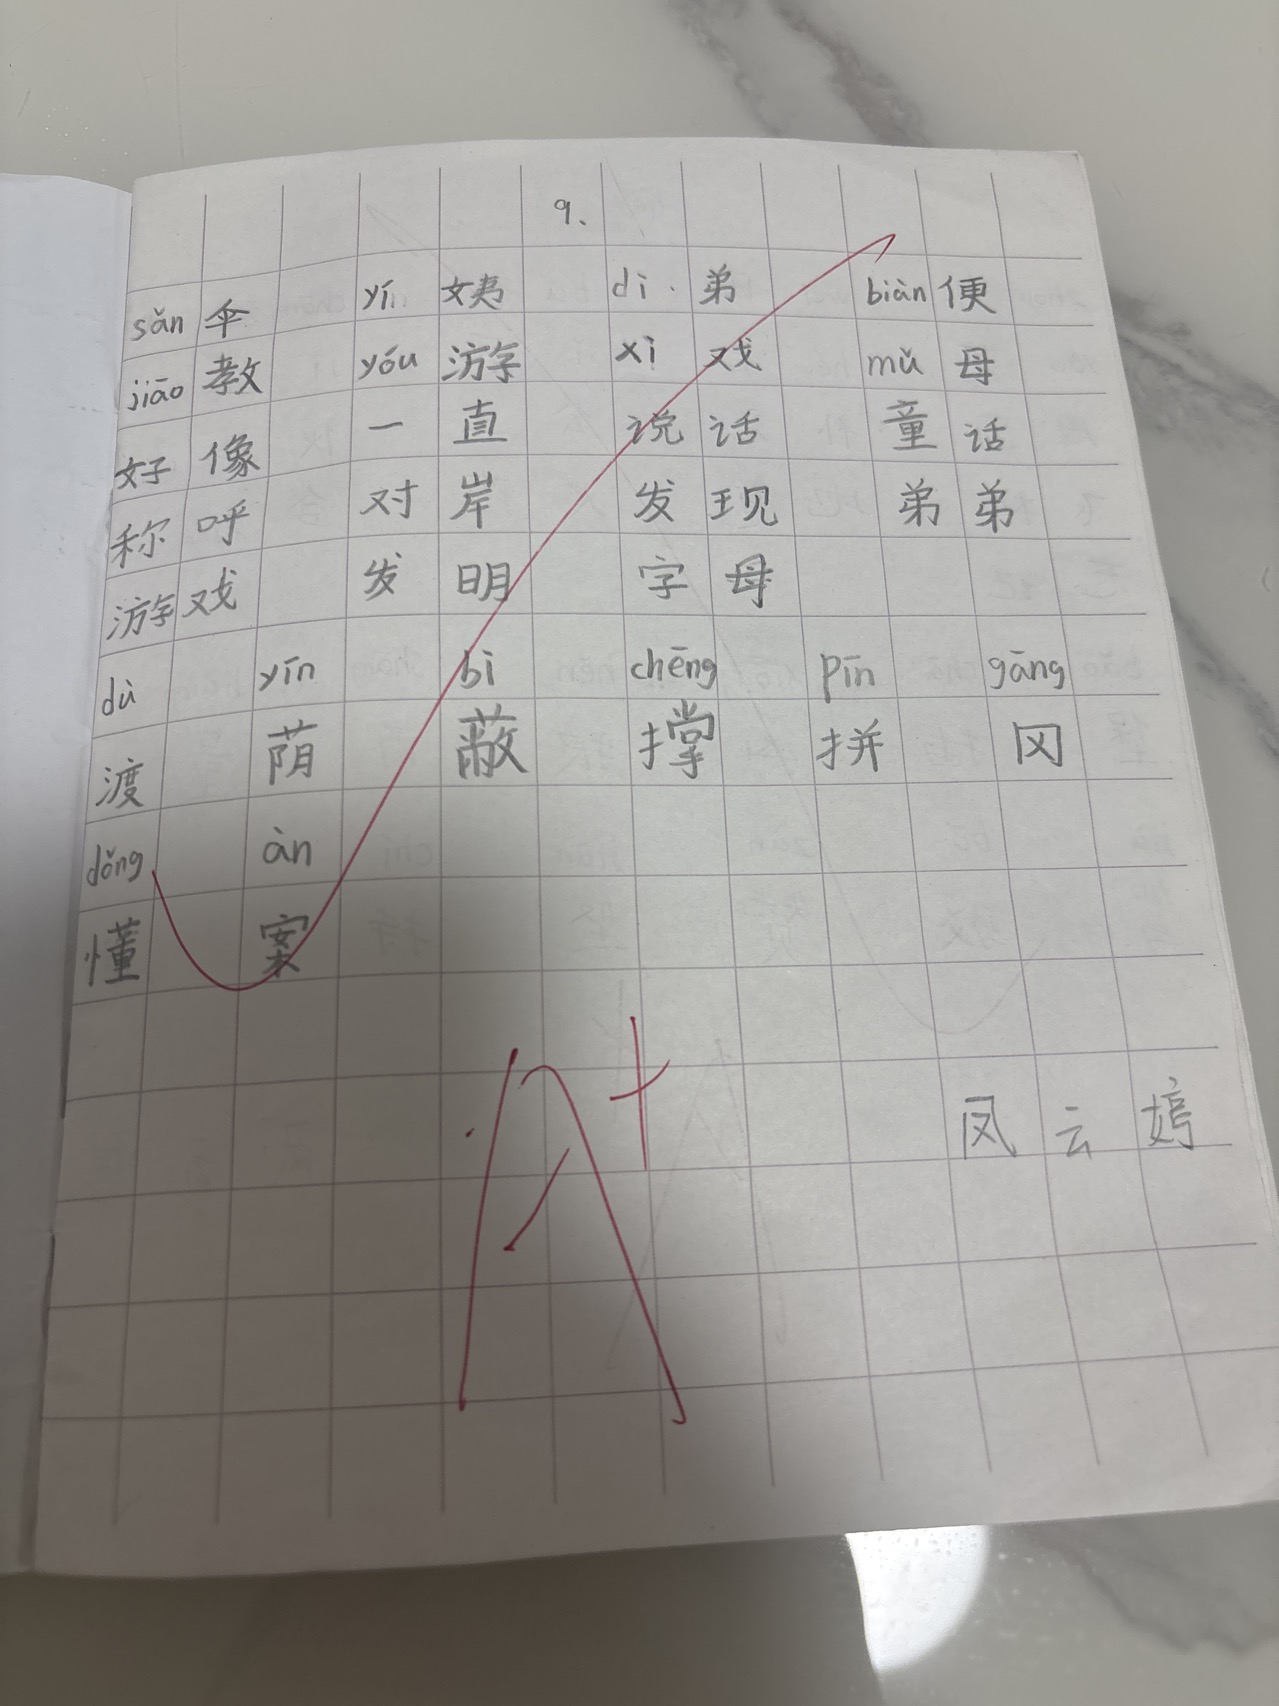 9.
sǎn 伞 yí 姨 dì 弟 biàn 便
jiāo 教 yóu 游 xì 戏 mǔ 母
好像 一直 说话 童话
称呼 对岸 发现 弟弟
游戏 发明 字母
dù yīn bì chēng pīn gāng
渡 荫 蔽 撑 拼 冈
dǒng àn
懂 案
A+
凤云婷